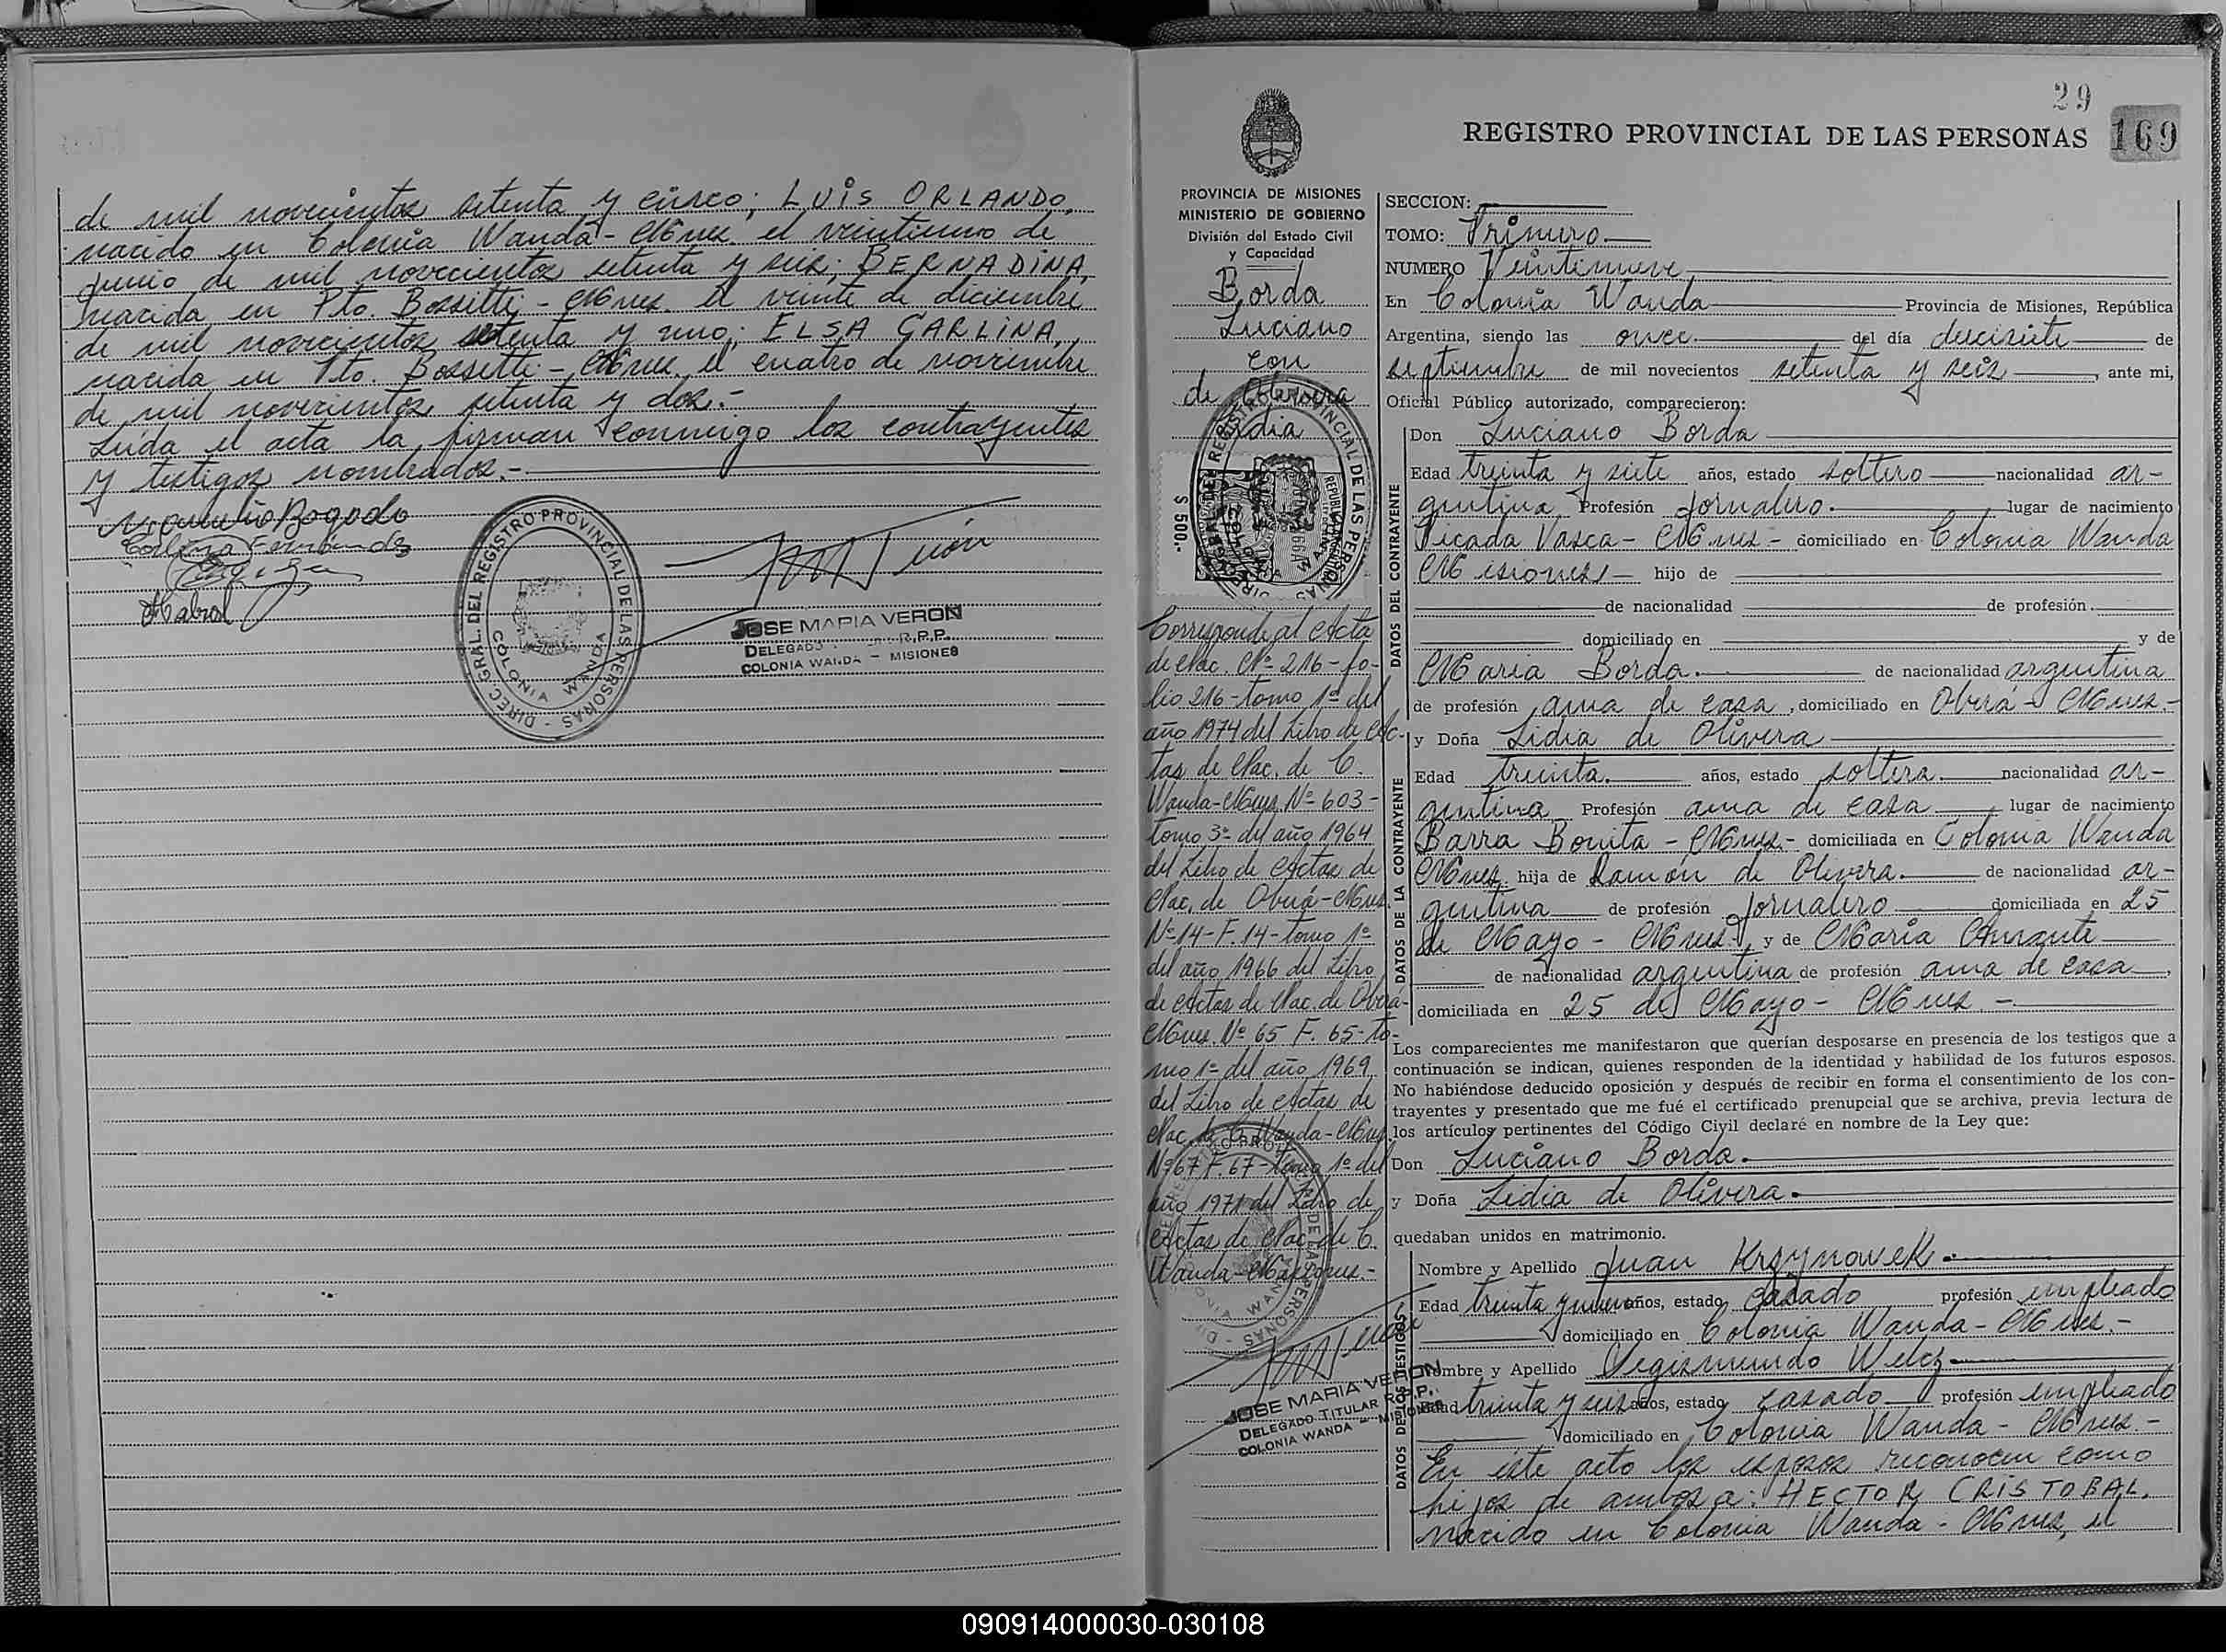 de mil novecientos setenta y cinco; LUIS ORLANDO,
nacido en Colonia Wanda - Mnes. el veintiuno de
junio de mil novecientos setenta y seis; BERNADINA,
nacida en Pto. Bossetti - Mnes. el veinte de diciembre
de mil novecientos setenta y uno; ELSA CARLINA,
nacida en Pto. Bossetti - Mnes. el cuatro de noviembre
de mil novecientos setenta y dos.-
Leída el acta la firman conmigo los contrayentes
y testigos nombrados.-
DIREC. GRAL. DEL REGISTRO PROVINCIAL DE LAS PERSONAS
COLONIA WANDA
JOSE MARIA VERON
DELEGADO R.P.P.
COLONIA WANDA - MISIONES
29
REGISTRO PROVINCIAL DE LAS PERSONAS 169
PROVINCIA DE MISIONES
MINISTERIO DE GOBIERNO
División del Estado Civil
y Capacidad
Borda
Luciano
con
de Olivera
Lidia
$ 500.-
Corresponde al Acta
de Nac. Nº 216 - fo-
lio 216 - tomo 1º del
año 1974 del Libro de Ac-
tas de Nac. de C.
Wanda - Mnes. Nº 603 -
tomo 3º del año 1964
del Libro de Actas de
Nac. de Oberá - Mnes.
Nº 14 - F. 14 - tomo 1º
del año 1966 del Libro
de Actas de Nac. de Oberá -
Mnes. Nº 65 F. 65 - to-
mo 1º del año 1969
del Libro de Actas de
Nac. de C. Wanda - Mnes.
Nº 67 F. 67 - tomo 1º del
año 1971 del Libro de
Actas de Nac. de C.
Wanda -
JOSE MARIA VERON
DELEGADO TITULAR R.P.P.
COLONIA WANDA - MISIONES
SECCION:
TOMO: Primero
NUMERO Veintinueve
En Colonia Wanda Provincia de Misiones, República
Argentina, siendo las once del día diecisiete de
septiembre de mil novecientos setenta y seis, ante mi,
Oficial Público autorizado, comparecieron:
DATOS DEL CONTRAYENTE
Don Luciano Borda
Edad treinta y siete años, estado soltero nacionalidad ar-
gentina Profesión jornalero lugar de nacimiento
Picada Vasca - Mnes - domiciliado en Colonia Wanda
Misiones - hijo de
de nacionalidad de profesión
domiciliado en y de
Maria Borda. de nacionalidad argentina
de profesión ama de casa, domiciliado en Oberá - Mnes.-
DATOS DE LA CONTRAYENTE
y Doña Lidia de Olivera
Edad treinta. años, estado soltera. nacionalidad ar-
gentina Profesión ama de casa, lugar de nacimiento
Barra Bonita - Mnes.- domiciliada en Colonia Wanda
Mnes. hija de Ramón de Olivera. de nacionalidad ar-
gentina de profesión jornalero domiciliada en 25
de Mayo - Mnes-, y de Maria
de nacionalidad argentina de profesión ama de casa,
domiciliada en 25 de Mayo - Mnes -
Los comparecientes me manifestaron que querían desposarse en presencia de los testigos que a
continuación se indican, quienes responden de la identidad y habilidad de los futuros esposos.
No habiéndose deducido oposición y después de recibir en forma el consentimiento de los con-
trayentes y presentado que me fué el certificado prenupcial que se archiva, previa lectura de
los artículos pertinentes del Código Civil declaré en nombre de la Ley que:
Don Luciano Borda.
y Doña Lidia de Olivera.
quedaban unidos en matrimonio.
DATOS DE LOS TESTIGOS
Nombre y Apellido Juan Krzynowek.
Edad treinta y años, estado casado profesión empleado
domiciliado en Colonia Wanda - Mnes.-
Nombre y Apellido Segismundo Welcz
Edad treinta y seis años, estado casado profesión empleado
domiciliado en Colonia Wanda - Mnes.-
En éste acto los esposos reconocen como
hijos de ambos a: HECTOR CRISTOBAL,
nacido en Colonia Wanda - Mnes, el
090914000030-030108